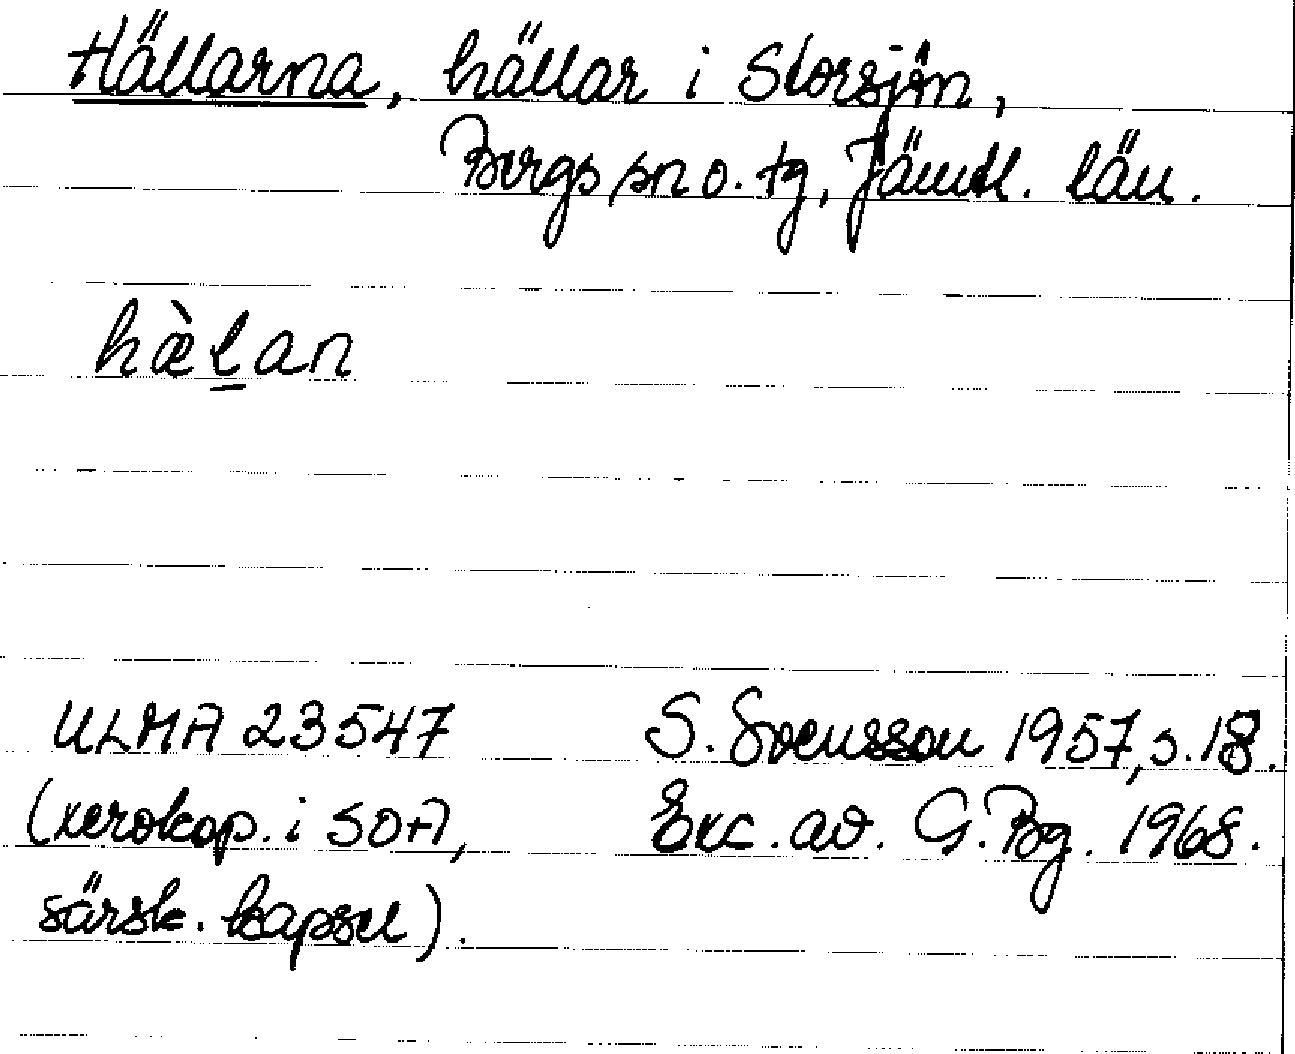 Hällarna, hällar i Storsjön,
Bergs sn o. tg, Jämtl. län.
hæ̀l̲an
ULMA 23547 S. Svensson 1957, s. 18.
(xerokop. i SOA, Exc. av. G. Bg. 1968.
särsk. kapsel).